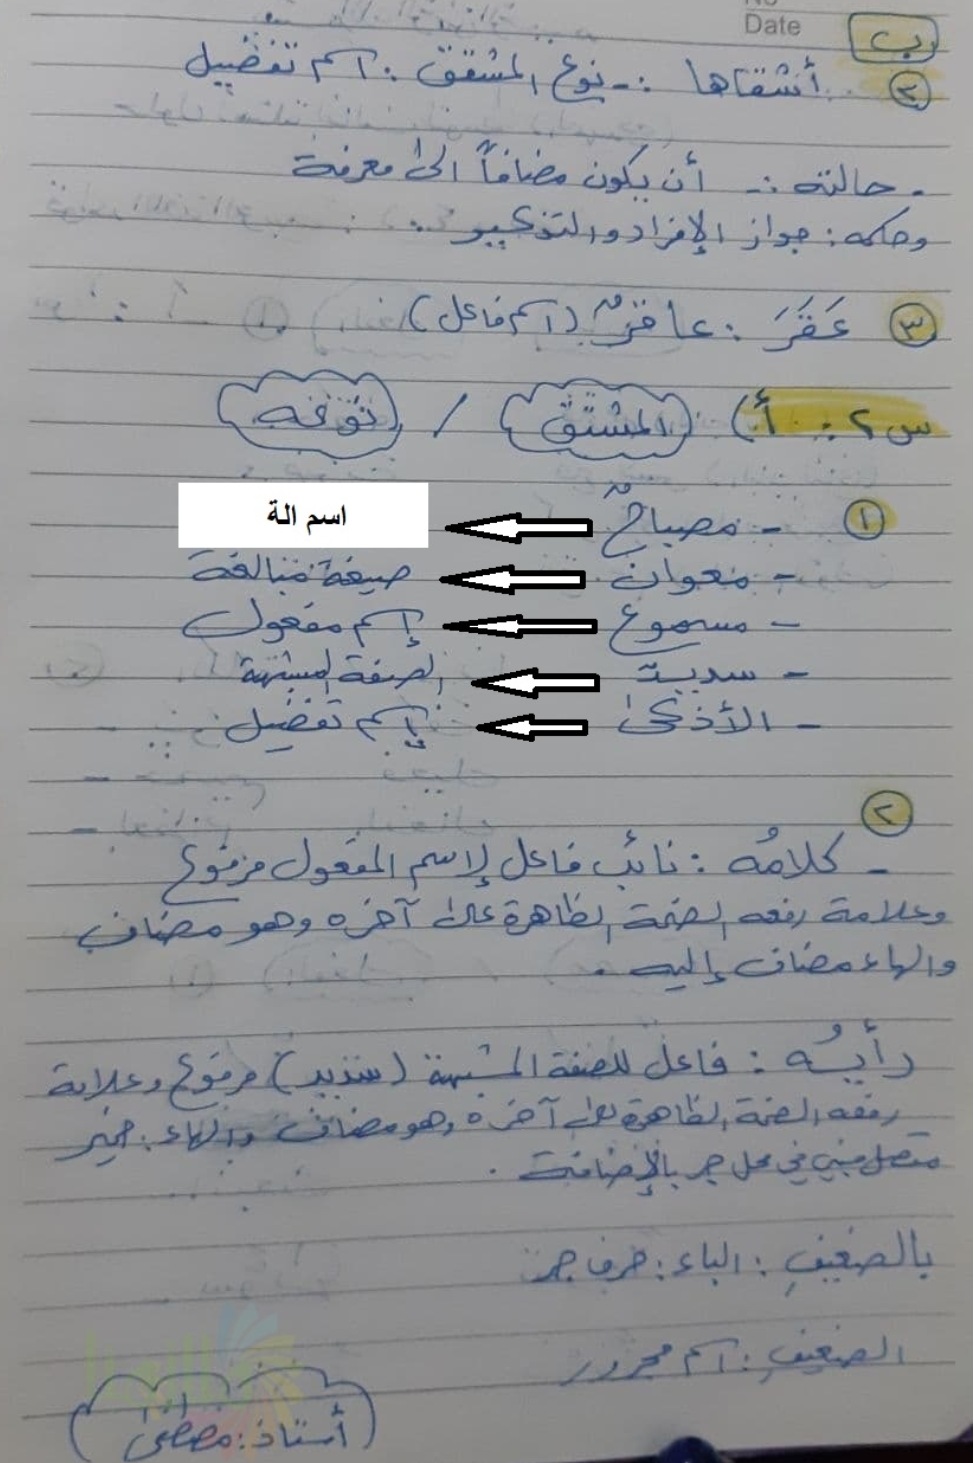 No
Date
ب
٢ أشقاها :- نوع المشتق : اسم تفضيل
- حالته :- أن يكون مضافاً الى معرفة
وحكمه : جواز الإفراد والتذكير .
٣ عَقَرَ : عاقرٌ (اسم فاعل)
س٢ : أ) المشتق / نوعه
١ - مصباحٌ ← اسم الة
- معوان ← صيغة مبالغة
- مسموع ← إسم مفعول
- سديد ← الصفة المشبهة
- الأذكى ← إسم تفضيل
٢
- كلامُه : نائب فاعل لاسم المفعول مرفوع
وعلامة رفعه الضمة الظاهرة على آخره وهو مضاف
والهاء مضاف إليه .
رأيُه : فاعل للصفة المشبهة (سديد) مرفوع وعلامة
رفعه الضمة الظاهرة على آخره وهو مضاف والهاء : ضمير
متصل مبني في محل جر بالإضافة .
بالضعيفِ : الباء : حرف جر
الضعيفِ : اسم مجرور
أستاذ : مصطفى